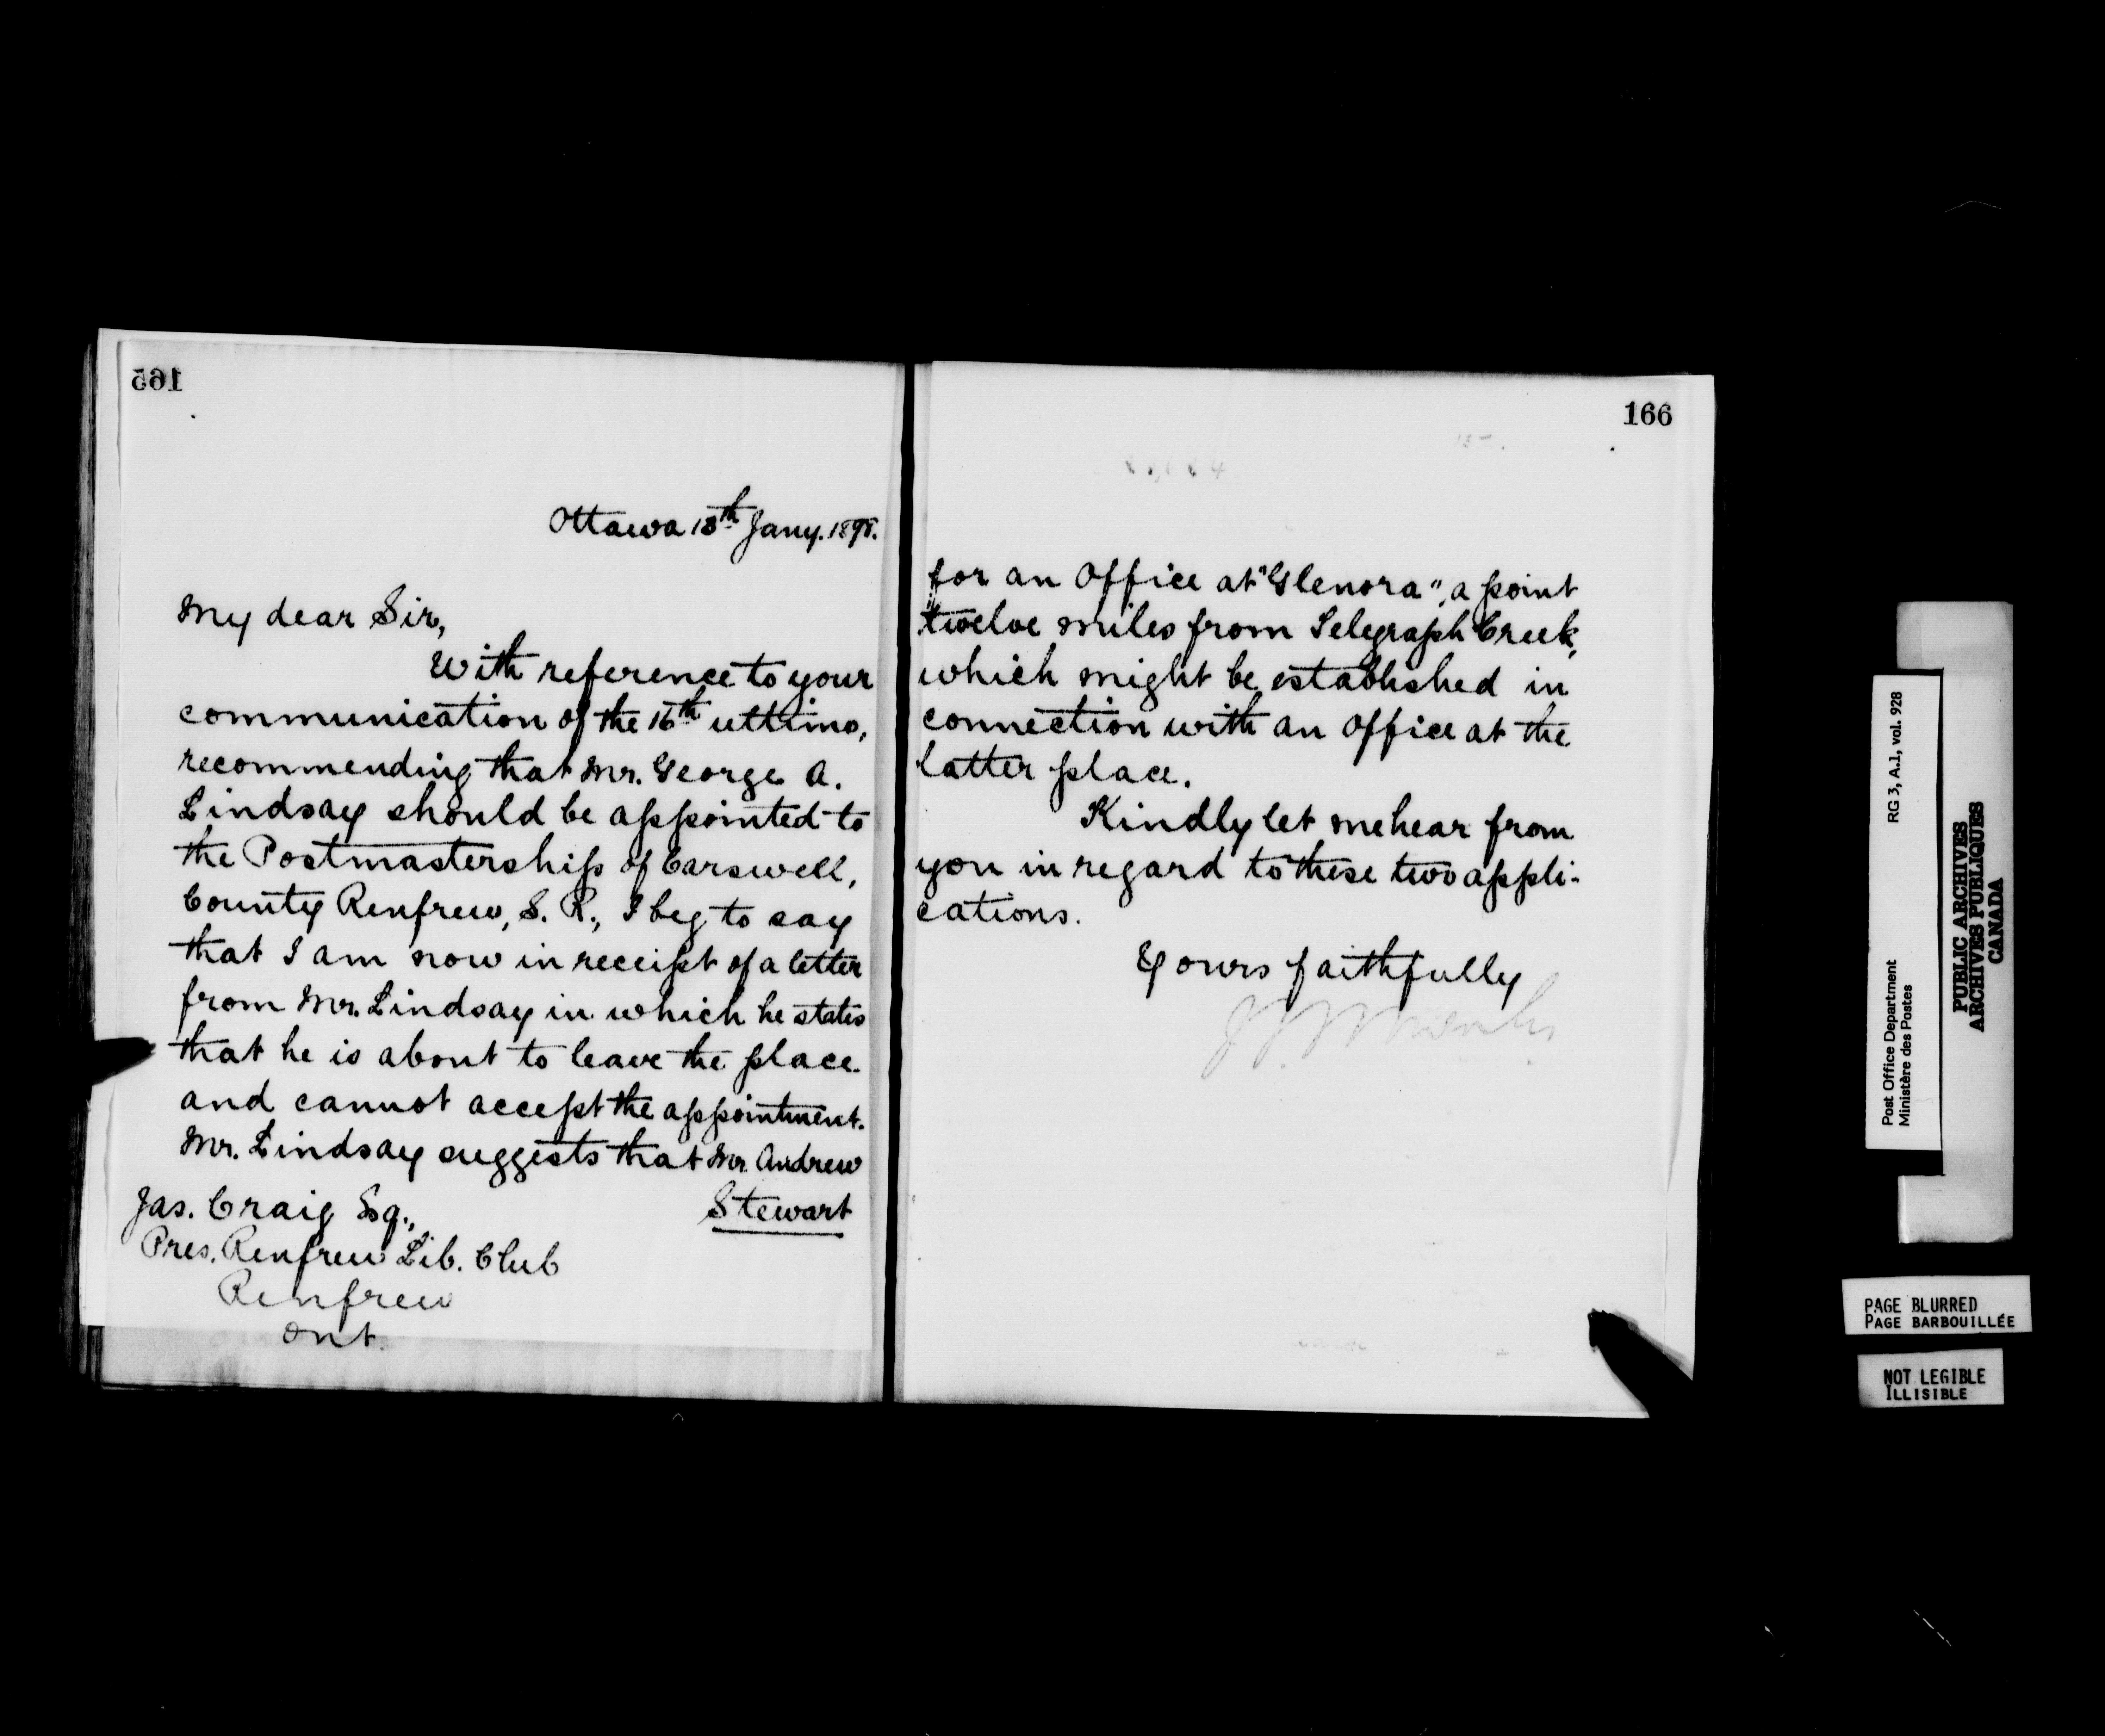 165
Ottawa 13th Jany. 1898.
My dear Sir,
With reference to your
communication of the 16th ultimo,
recommending that Mr. George A.
Lindsay should be appointed to
the Postmastership of Carswell,
County Renfrew, S. R., I beg to say
that I am now in receipt of a letter
from Mr. Lindsay in which he states
that he is about to leave the place
and cannot accept the appointment.
Mr. Lindsay suggests that Mr. Andrew
Stewart
Jas. Craig Esq.,
Pres. Renfrew Lib. Club
Renfrew
Ont.
166
for an Office at "Glenora", a point
twelve miles from Telegraph Creek,
which might be established in
connection with an Office at the
latter place.
Kindly let me hear from
you in regard to these two appli-
cations.
Yours faithfully
RG 3, A.1, vol. 928
Post Office Department
Ministère des Postes
PUBLIC ARCHIVES
ARCHIVES PUBLIQUES
CANADA
PAGE BLURRED
PAGE BARBOUILLÉE
NOT LEGIBLE
ILLISIBLE